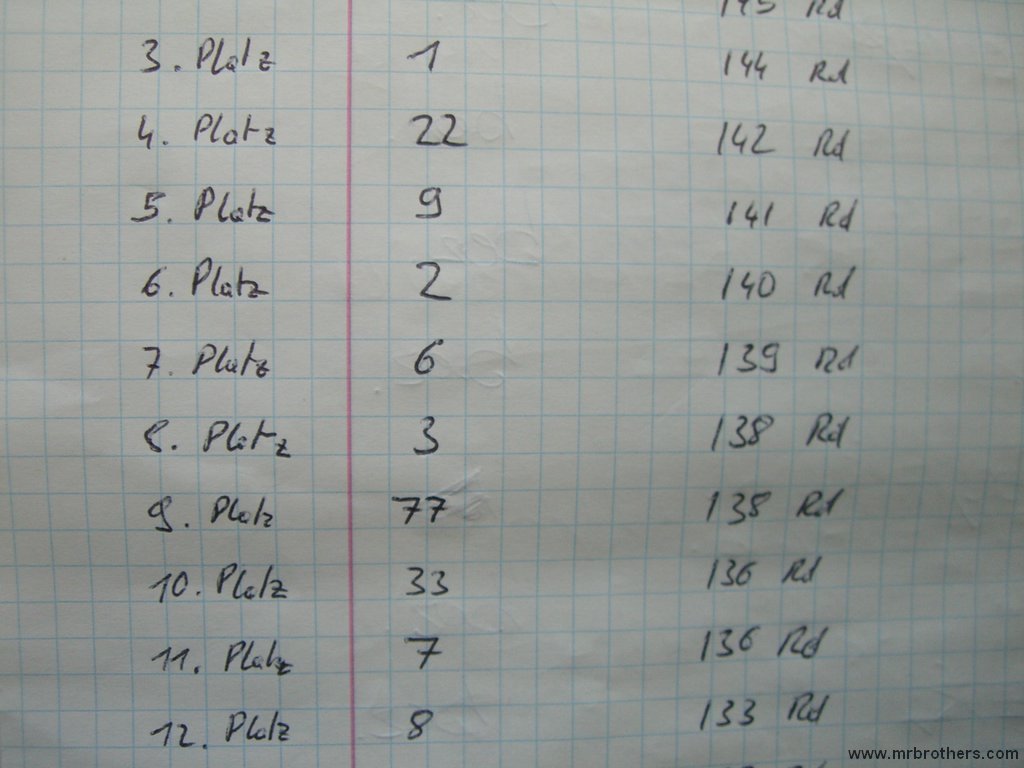 145 Rd
3. Platz 1 144 Rd
4. Platz 22 142 Rd
5. Platz 9 141 Rd
6. Platz 2 140 Rd
7. Platz 6 139 Rd
8. Platz 3 138 Rd
9. Platz 77 138 Rd
10. Platz 33 136 Rd
11. Platz 7 136 Rd
12. Platz 8 133 Rd
www.mrbrothers.com